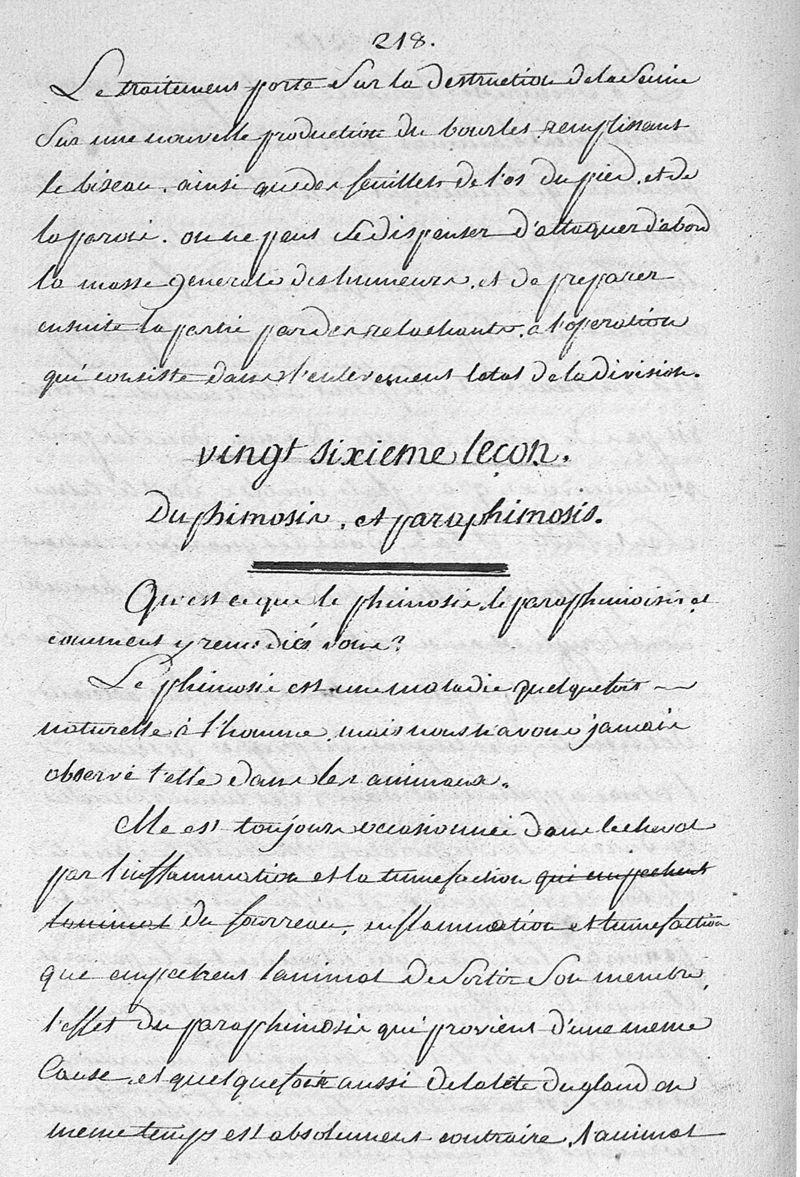 218.
Le traitement porte sur la destruction de la Seime
sur une nouvelle production du bourlet remplissant
le biseau. ainsi que des feuillets de l'os du pied, et de
la paroi. on ne peut se dispenser d'attaquer d'abord
la masse generale des humeurs, et de preparer
ensuite la partie par des relachants, a l'operation
qui consiste dans l'enlevement total de la division.
vingt sixieme leçon.
Du phimosis, et paraphimosis.
Qu'est ce que le phimosis, le paraphimosis et
comment y remediés vous?
Le phimosis est une maladie quelquefois
naturelle à l'homme, mais nous n'avons jamais
observé telle dans les animaux.
Elle est toujours occasionnée dans le cheval
par l'inflammation et la tumefaction qui empechent
l'animal du fourreau, inflammation et tumefaction
que empechent l'animal de sortir son membre,
l'effet du paraphimosis qui provient d'une meme
cause, et quelquefois aussi de la tête du gland en
meme temps est absolument contraire, l'animal